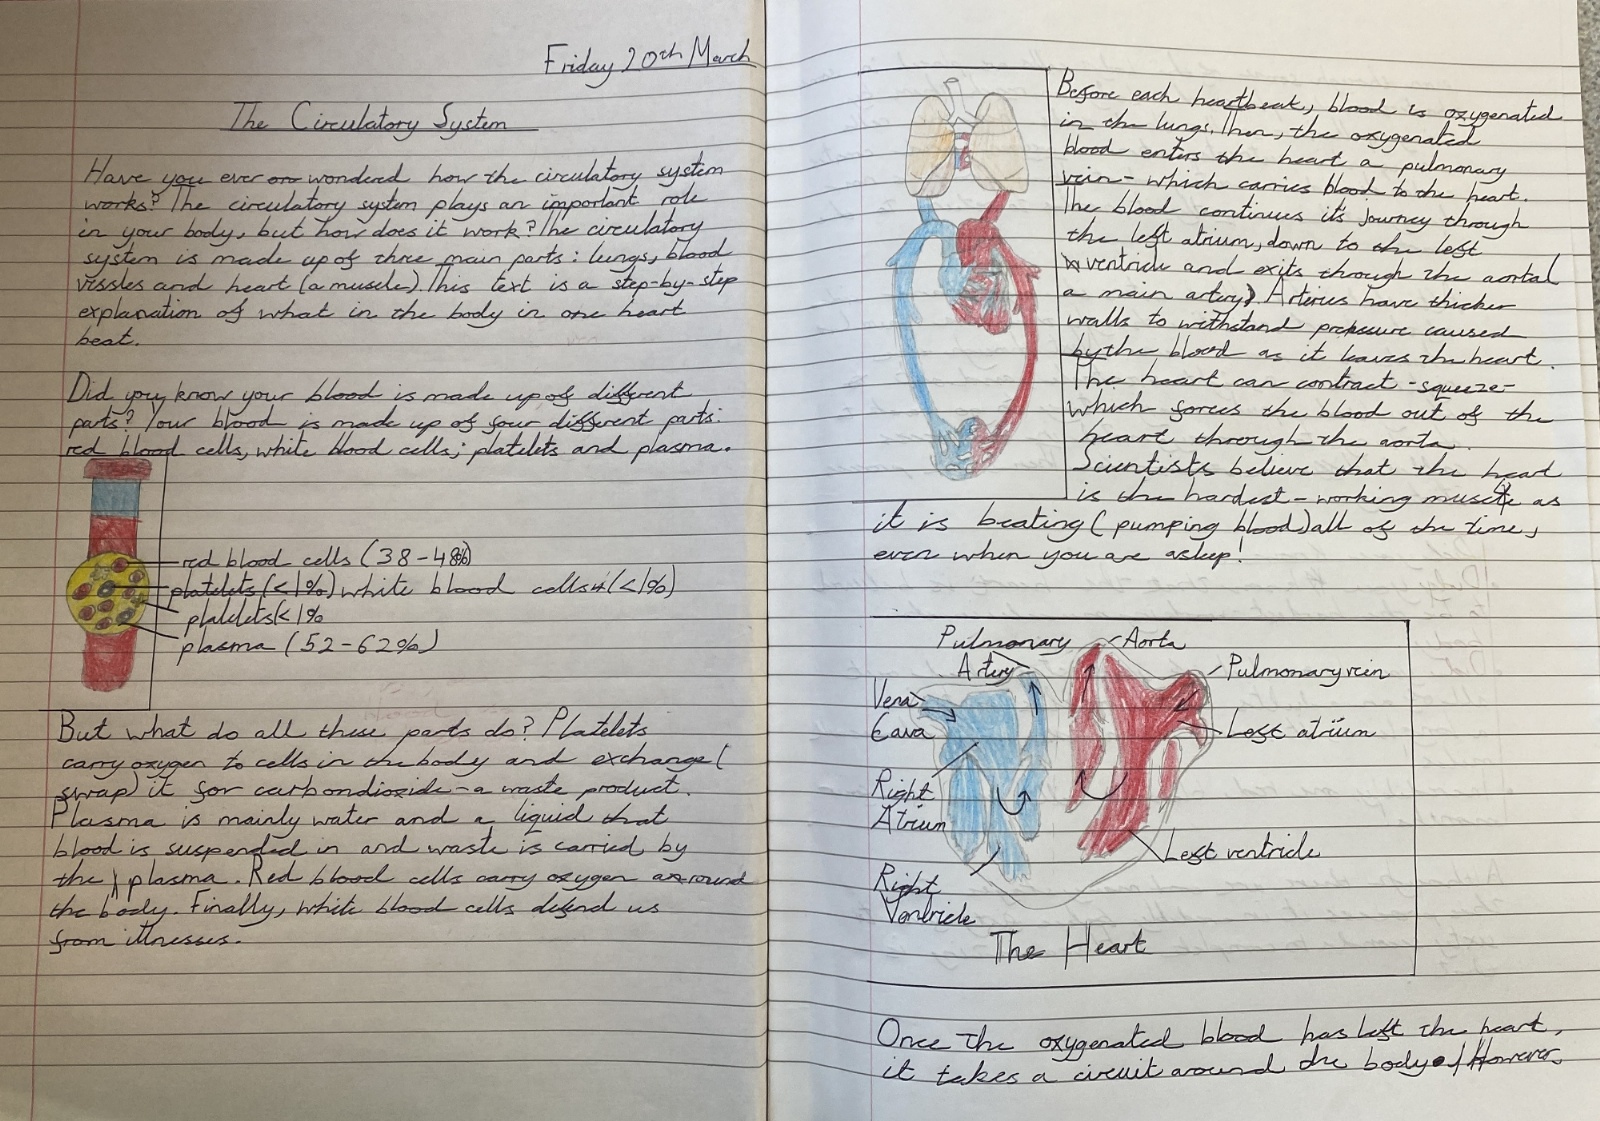 Friday 20th March
The Circulatory System
Have you ever wondered how the circulatory system
works? The circulatory system plays an important role
in your body, but how does it work? The circulatory
system is made up of three main parts: lungs, blood
vessles and heart (a muscle). This text is a step-by-step
explanation of what in the body in one heart
beat.
Did you know your blood is made up of different
parts? Your blood is made up of four different parts:
red blood cells, white blood cells; platelets and plasma.
red blood cells (38-48%)
platelets (<1%) white blood cells (<1%)
platelets <1%
plasma (52-62%)
But what do all these parts do? Platelets
carry oxygen to cells in the body and exchange (
swap) it for carbondioxide - a waste product.
Plasma is mainly water and a liquid that
blood is suspended in and waste is carried by
the plasma. Red blood cells carry oxygen around
the body. Finally, white blood cells defend us
from illnesses.
Before each heartbeat, blood is oxygenated
in the lungs. Then, the oxygenated
blood enters the heart a pulmonary
vein - which carries blood to the heart.
The blood continues its journey through
the left atrium, down to the left
ventricle and exits through the aorta(
a main artery). Arteries have thicker
walls to withstand pressure caused
by the blood as it leaves the heart.
The heart can contract - squeeze -
which forces the blood out of the
heart through the aorta.
Scientists believe that the heart
is the hardest - working muscle as
it is beating (pumping blood) all of the time,
even when you are asleep!
Pulmonary
Artery
Aorta
Pulmonary vein
Vena
Cava
Left atrium
Right
Atrium
Left ventricle
Right
Ventricle
The Heart
Once the oxygenated blood has left the heart,
it takes a circuit around the body. However,